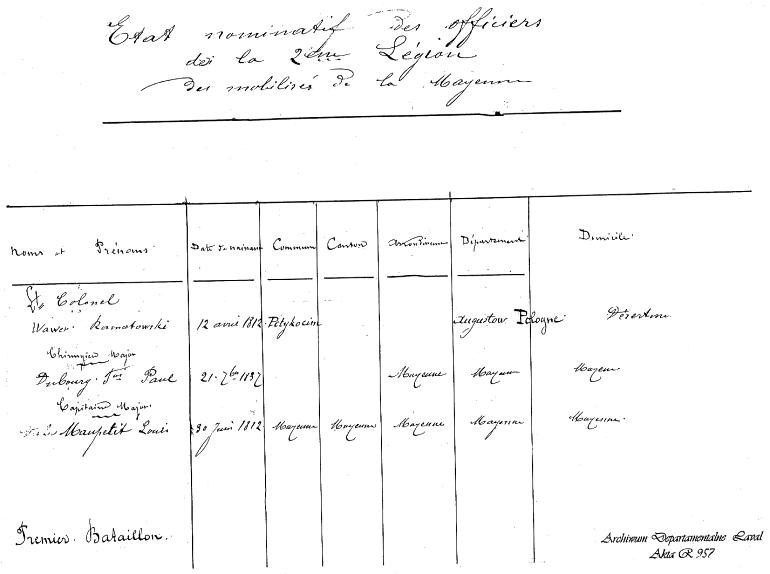 Etat nominatif des officiers
de la 2ème Légion
des mobilisés de la Mayenne
Noms et Prénoms Date de naissance Commune Canton Arrondissement Département Domicile
Lt Colonel
Wawer Ramotowski 12 avril 1812 Petykocim Augustow Pologne Désertine
Chirurgien Major
Dubourg Paul 21 7bre Mayenne Mayenne Mayenne
Capitaine Major
Maupetit Louis 30 Juin 1812 Mayenne Mayenne Mayenne Mayenne Mayenne
Premier Bataillon.
Archiwum Departamentalne Laval
Akta R 957